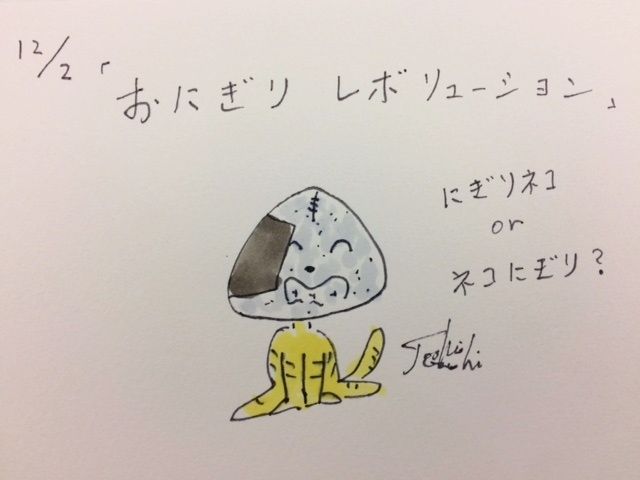 12/2「おにぎり レボリューション」
にぎりネコ
or
ネコにぎり？